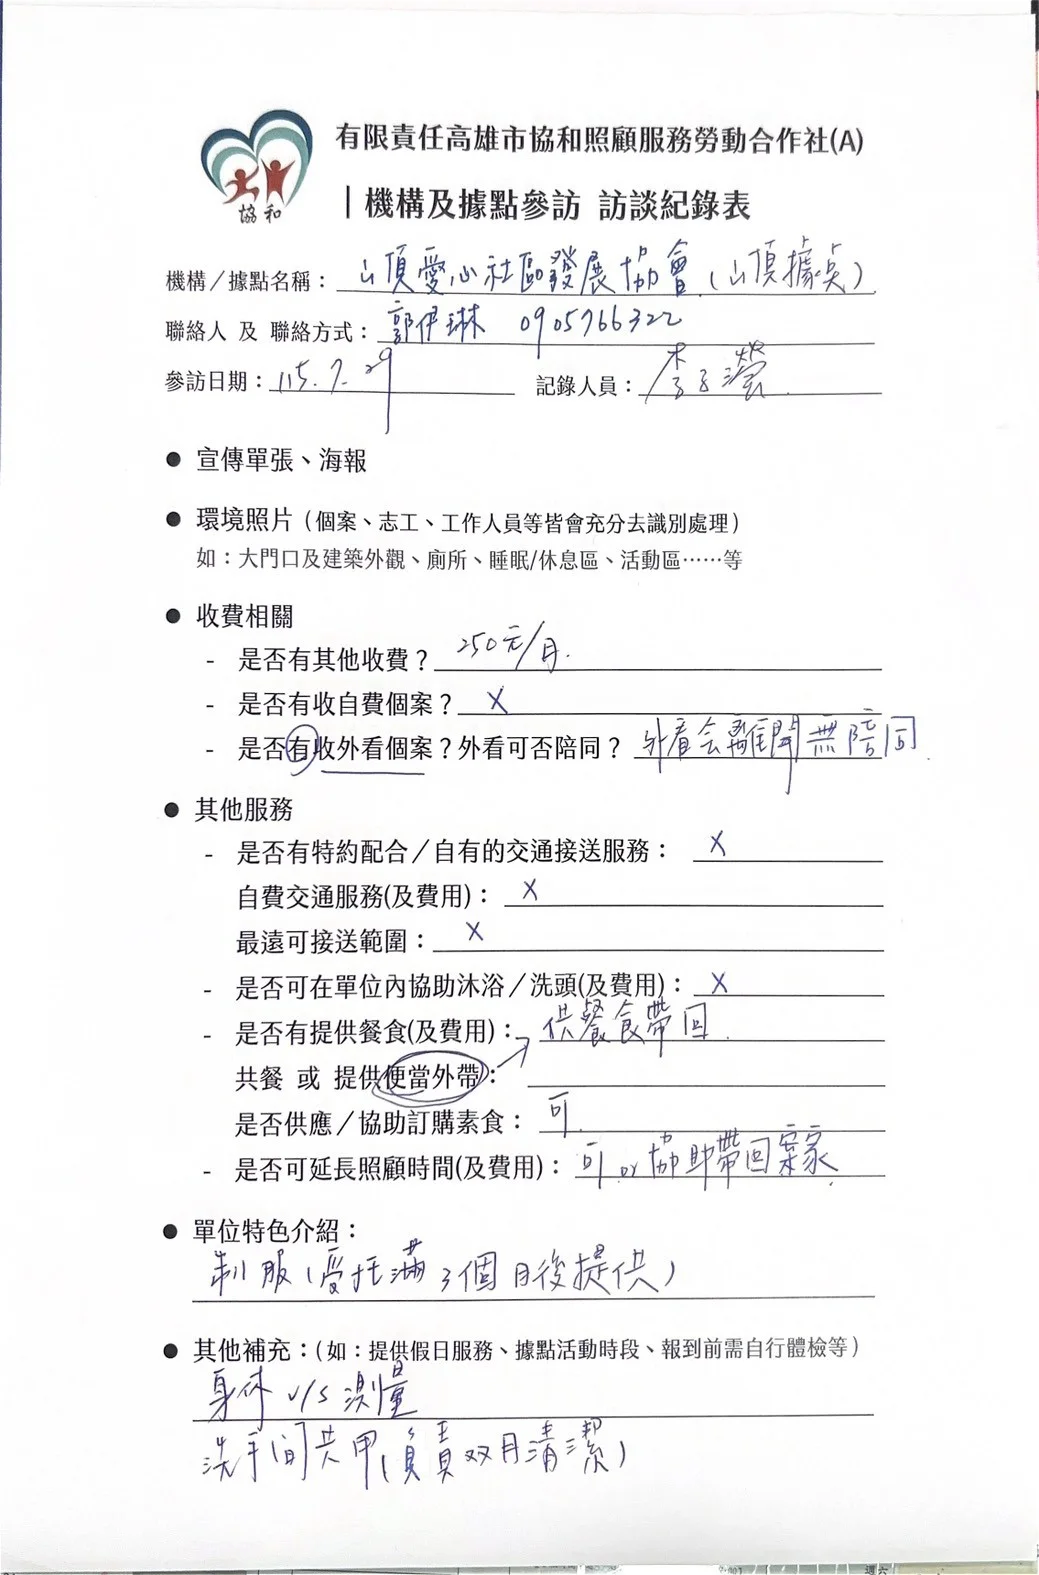 協和
有限責任高雄市協和照顧服務勞動合作社(A)
|機構及據點參訪 訪談紀錄表
機構／據點名稱：山頂愛心社區發展協會(山頂據點)
聯絡人 及 聯絡方式：郭伊琳 0905766322
參訪日期：115.7.29 記錄人員：李子瀠
● 宣傳單張、海報
● 環境照片（個案、志工、工作人員等皆會充分去識別處理）
如：大門口及建築外觀、廁所、睡眠/休息區、活動區⋯⋯等
● 收費相關
- 是否有其他收費？250元/月.
- 是否有收自費個案？X
- 是否有收外看個案？外看可否陪同？外看会離開無陪同.
● 其他服務
- 是否有特約配合／自有的交通接送服務：X
自費交通服務(及費用)：X
最遠可接送範圍：X
- 是否可在單位內協助沐浴／洗頭(及費用)：X
- 是否有提供餐食(及費用)：供餐食帶回.
共餐 或 提供便當外帶：
是否供應／協助訂購素食：可.
- 是否可延長照顧時間(及費用)：可 or 協助帶回案家.
● 單位特色介紹：
制服(受托滿3個月後提供)
● 其他補充：(如：提供假日服務、據點活動時段、報到前需自行體檢等)
身体 v/s 測量
洗手间共甲(負責双月清潔)
週六